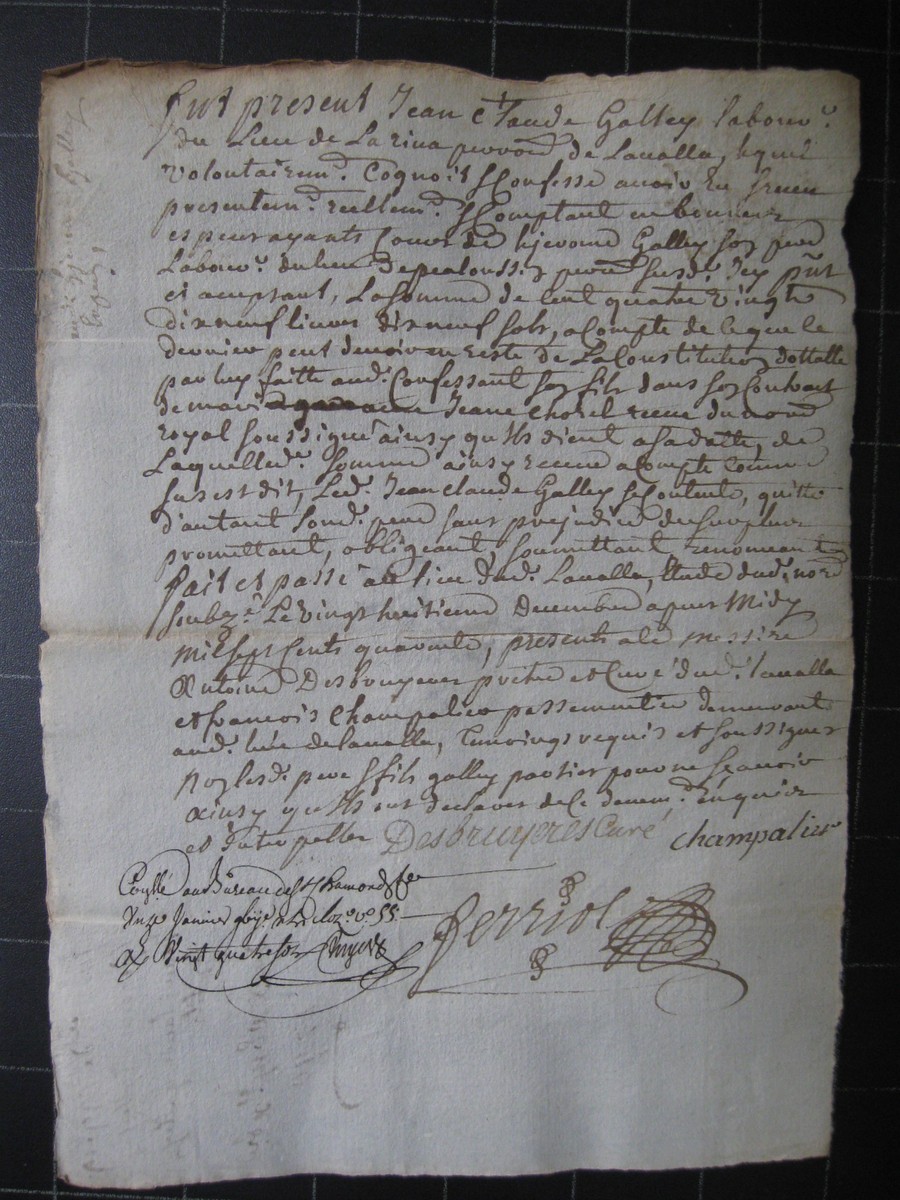 fut present Jean Claude Galley labour.
du Lieu de La rina parroi. de Lavalla, lequel
volontairem.t Cognoist & Confesse avoir Eu & receu
presentem.t reellem.t & Comptant en bonnes
especes ayants Cours de hierome Galley son pere
Labour. du lieu parroi. susd. Icy p.nt
et aceptant, La Somme de Cent quatre vingts
dixneuf livres dixneuf sols, a Compte de ce que le
dernier peut devoir en reste de La Constitution dottalle
par luy faitte aud. Confessant son fils dans son Contrat
de mari avec Jeane Chorel receu du no.re
royal soussigné ainsy qu'ils dient a sa datte, de
Laquelle d. somme ainsy receue a Compte Comme
sus est dit, Led. Jean Claude Galley se Contente, quitte
d'autant sond. pere sans prejudice du surplus
promettant, obligeant, soumettant, renonceant &
fait et passé au lieu dud. Lavalla, Etude dud. no.re
soubz.é Le vingt huitieme Decembre apres Midy
Mil sept Cents quarante, presents a ce Messire
Antoine Desbruyeres prêtre et Curé dud. lavalla
et francois Champalier passementier demeurant
aud. lieu de lavalla, temoings requis et soussignes
Non lesd. pere & fils galley parties pour ne sçavoir
Ainsy qu'ils ont declarer de Ce deuem.t Enquis
et Interpellés Desbruyeres Curé Champalier
Con.llé au Bureau de St Chamond
Onze Janvier v.o 55
Vingt quatre sols
ferriol